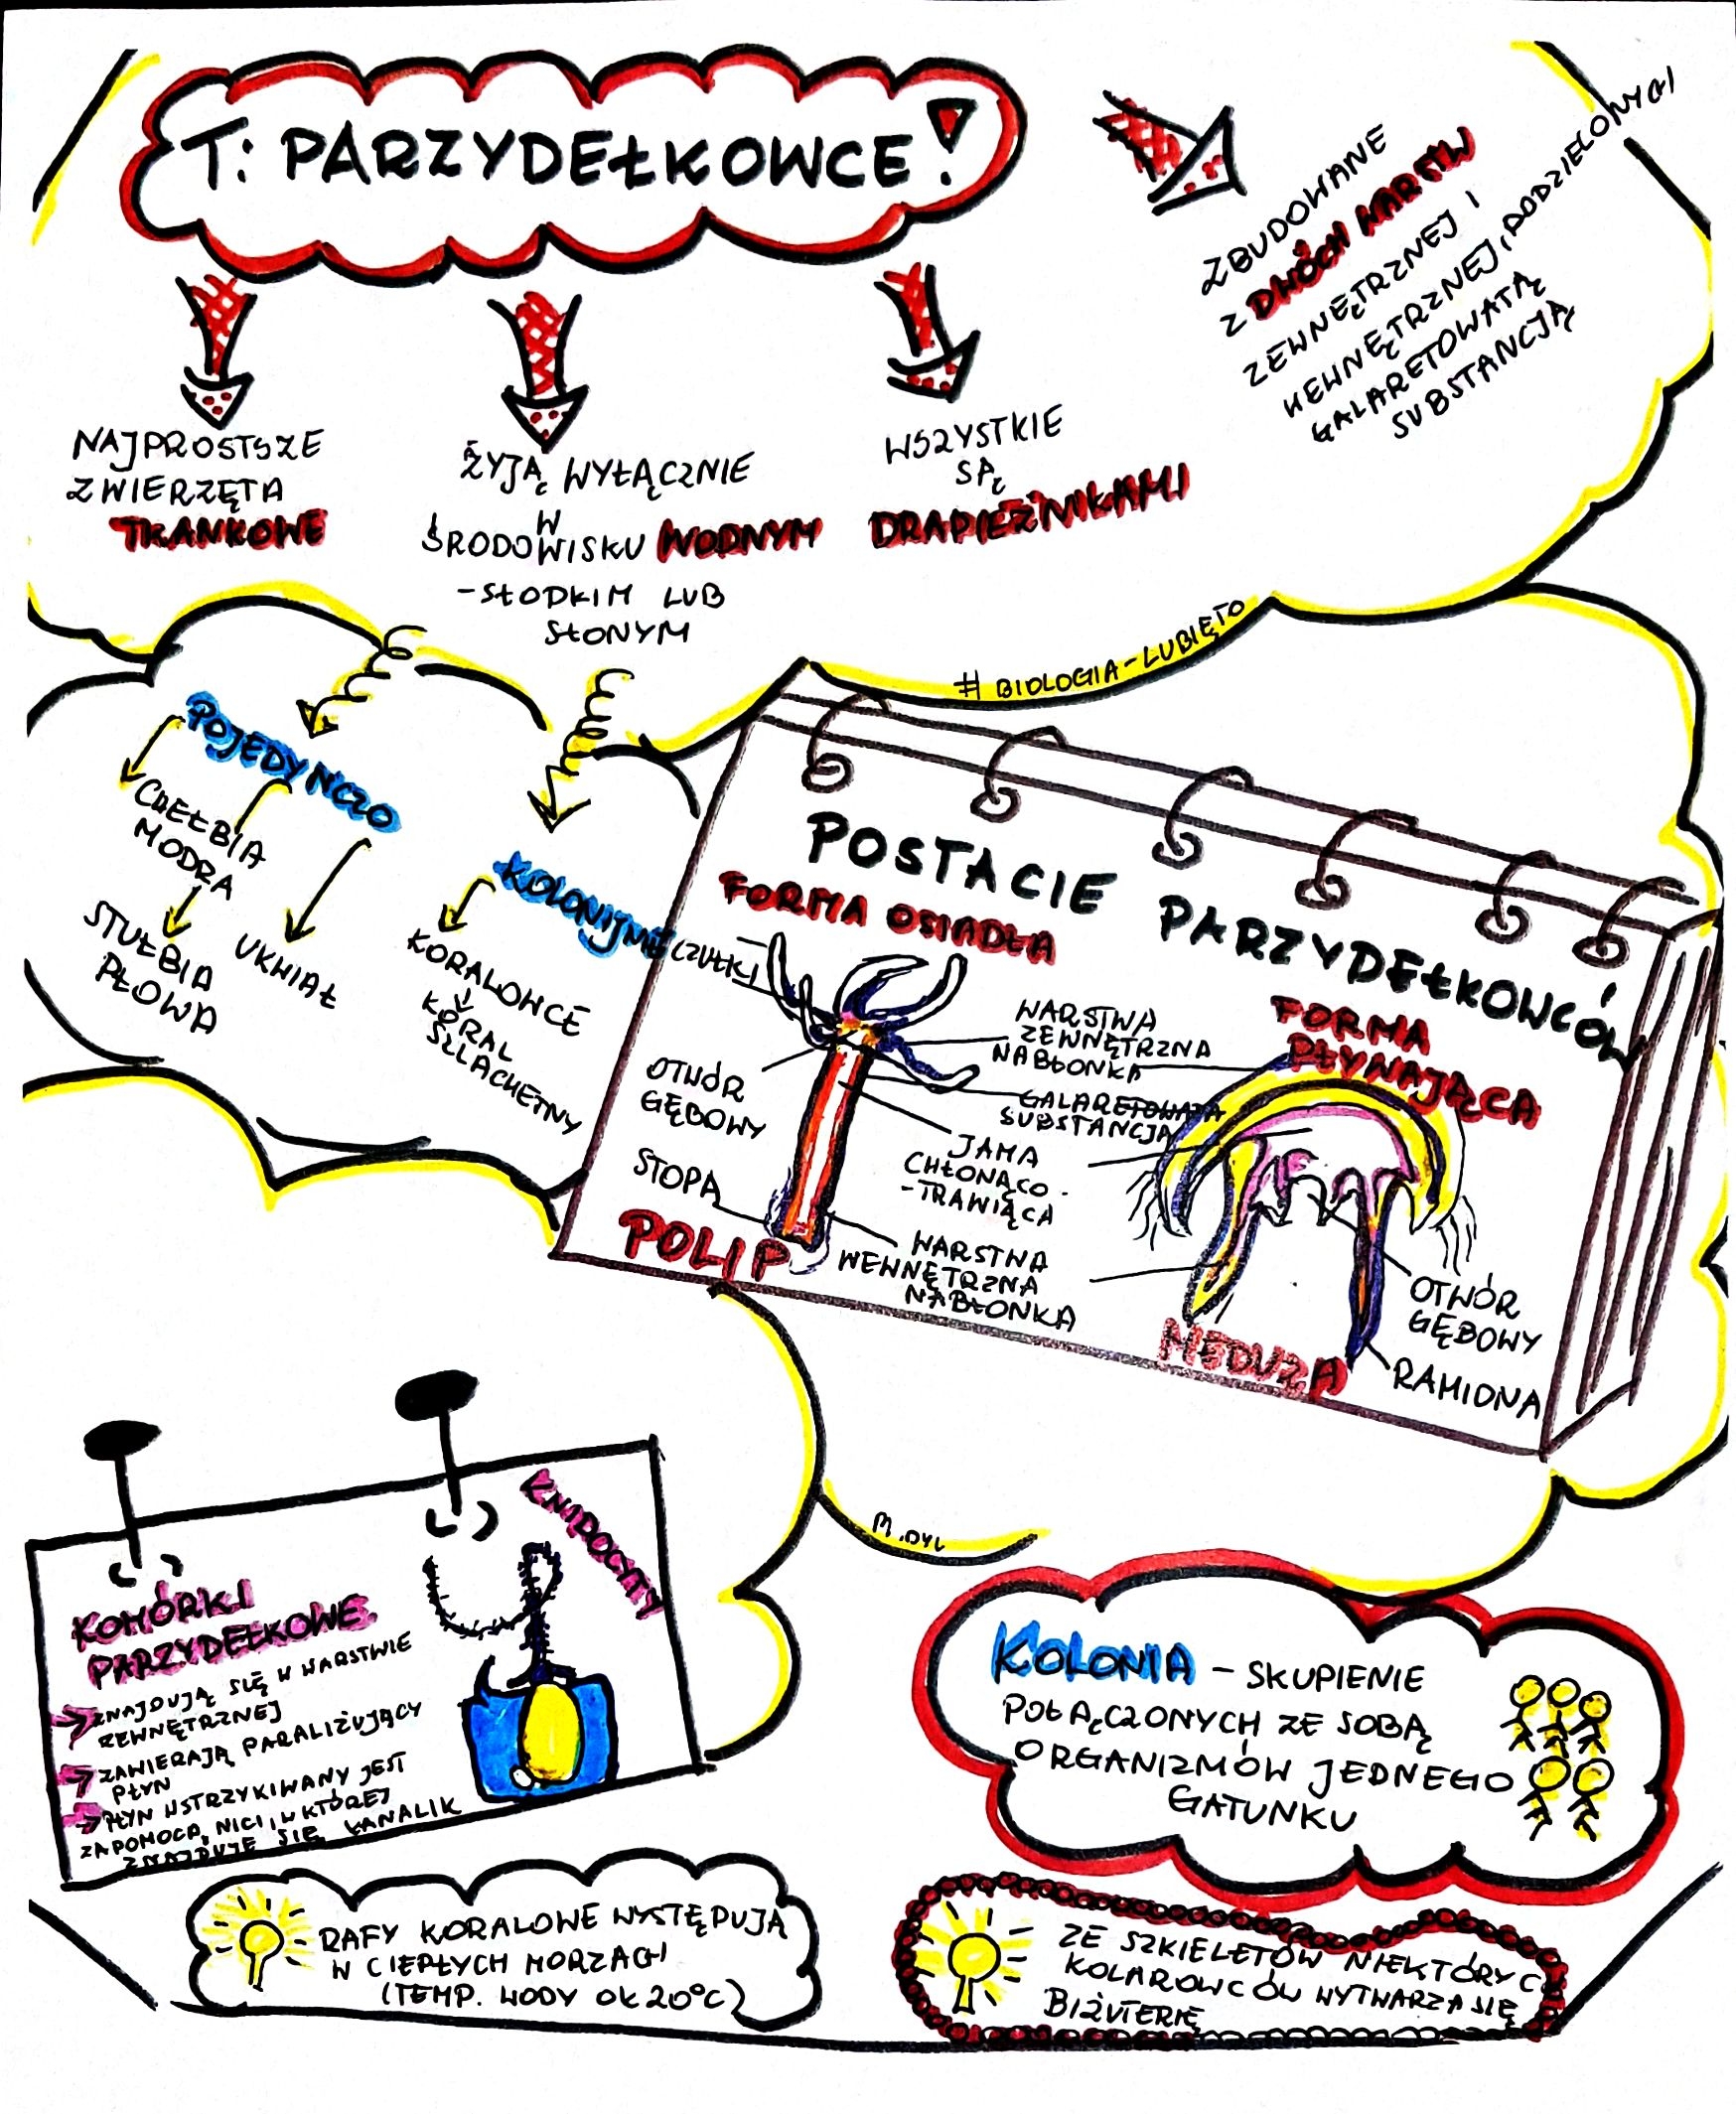 T: PARZYDEŁKOWCE!
ZBUDOWANE
Z DWÓCH WARSTW
ZEWNĘTRZNEJ I
WEWNĘTRZNEJ, PODZIELONYCH
GALARETOWATĄ
SUBSTANCJĄ
NAJPROSTSZE
ZWIERZĘTA
TKANKOWE
ŻYJĄ WYŁĄCZNIE
W
ŚRODOWISKU WODNYM
- SŁODKIM LUB
SŁONYM
WSZYSTKIE
SĄ
DRAPIEŻNIKAMI
# BIOLOGIA-LUBIĘTO
POJEDYŃCZO
CHEŁBIA
MODRA
STUŁBIA
PŁOWA
UKWIAŁ
KOLONIJNE
KORALOWCE
KORAL
SZLACHETNY
POSTACIE PARZYDĘŁKOWCÓW
FORMA OSIADŁA
CZUŁKI
OTWÓR
GĘBOWY
STOPA
POLIP
WARSTWA
ZEWNĘTRZNA
NABŁONKA
GALARETOWATA
SUBSTANCJA
JAMA
CHŁONĄCO-
-TRAWIĄCA
WARSTWA
WEWNĘTRZNA
NABŁONKA
FORMA
PŁYWAJĄCA
OTWÓR
GĘBOWY
RAMIONA
MEDUZA
M.DYL
KNIDOCYTY
KOMÓRKI
PARZYDEŁKOWE
ZNAJDUJĄ SIĘ W WARSTWIE
ZEWNĘTRZNEJ
ZAWIERAJĄ PARALIŻUJĄCY
PŁYN
PŁYN WSTRZYKIWANY JEST
ZA POMOCĄ NICI, W KTÓREJ
ZNAJDUJE SIĘ KANALIK
KOLONIA - SKUPIENIE
POŁĄCZONYCH ZE SOBĄ
ORGANIZMÓW JEDNEGO
GATUNKU
RAFY KORALOWE WYSTĘPUJĄ
W CIEPŁYCH MORZACH
(TEMP. WODY OK 20°C)
ZE SZKIELETÓW NIEKTÓRYC
KOLAROWCÓW WYTWARZA SIĘ
BIŻUTERIĘ